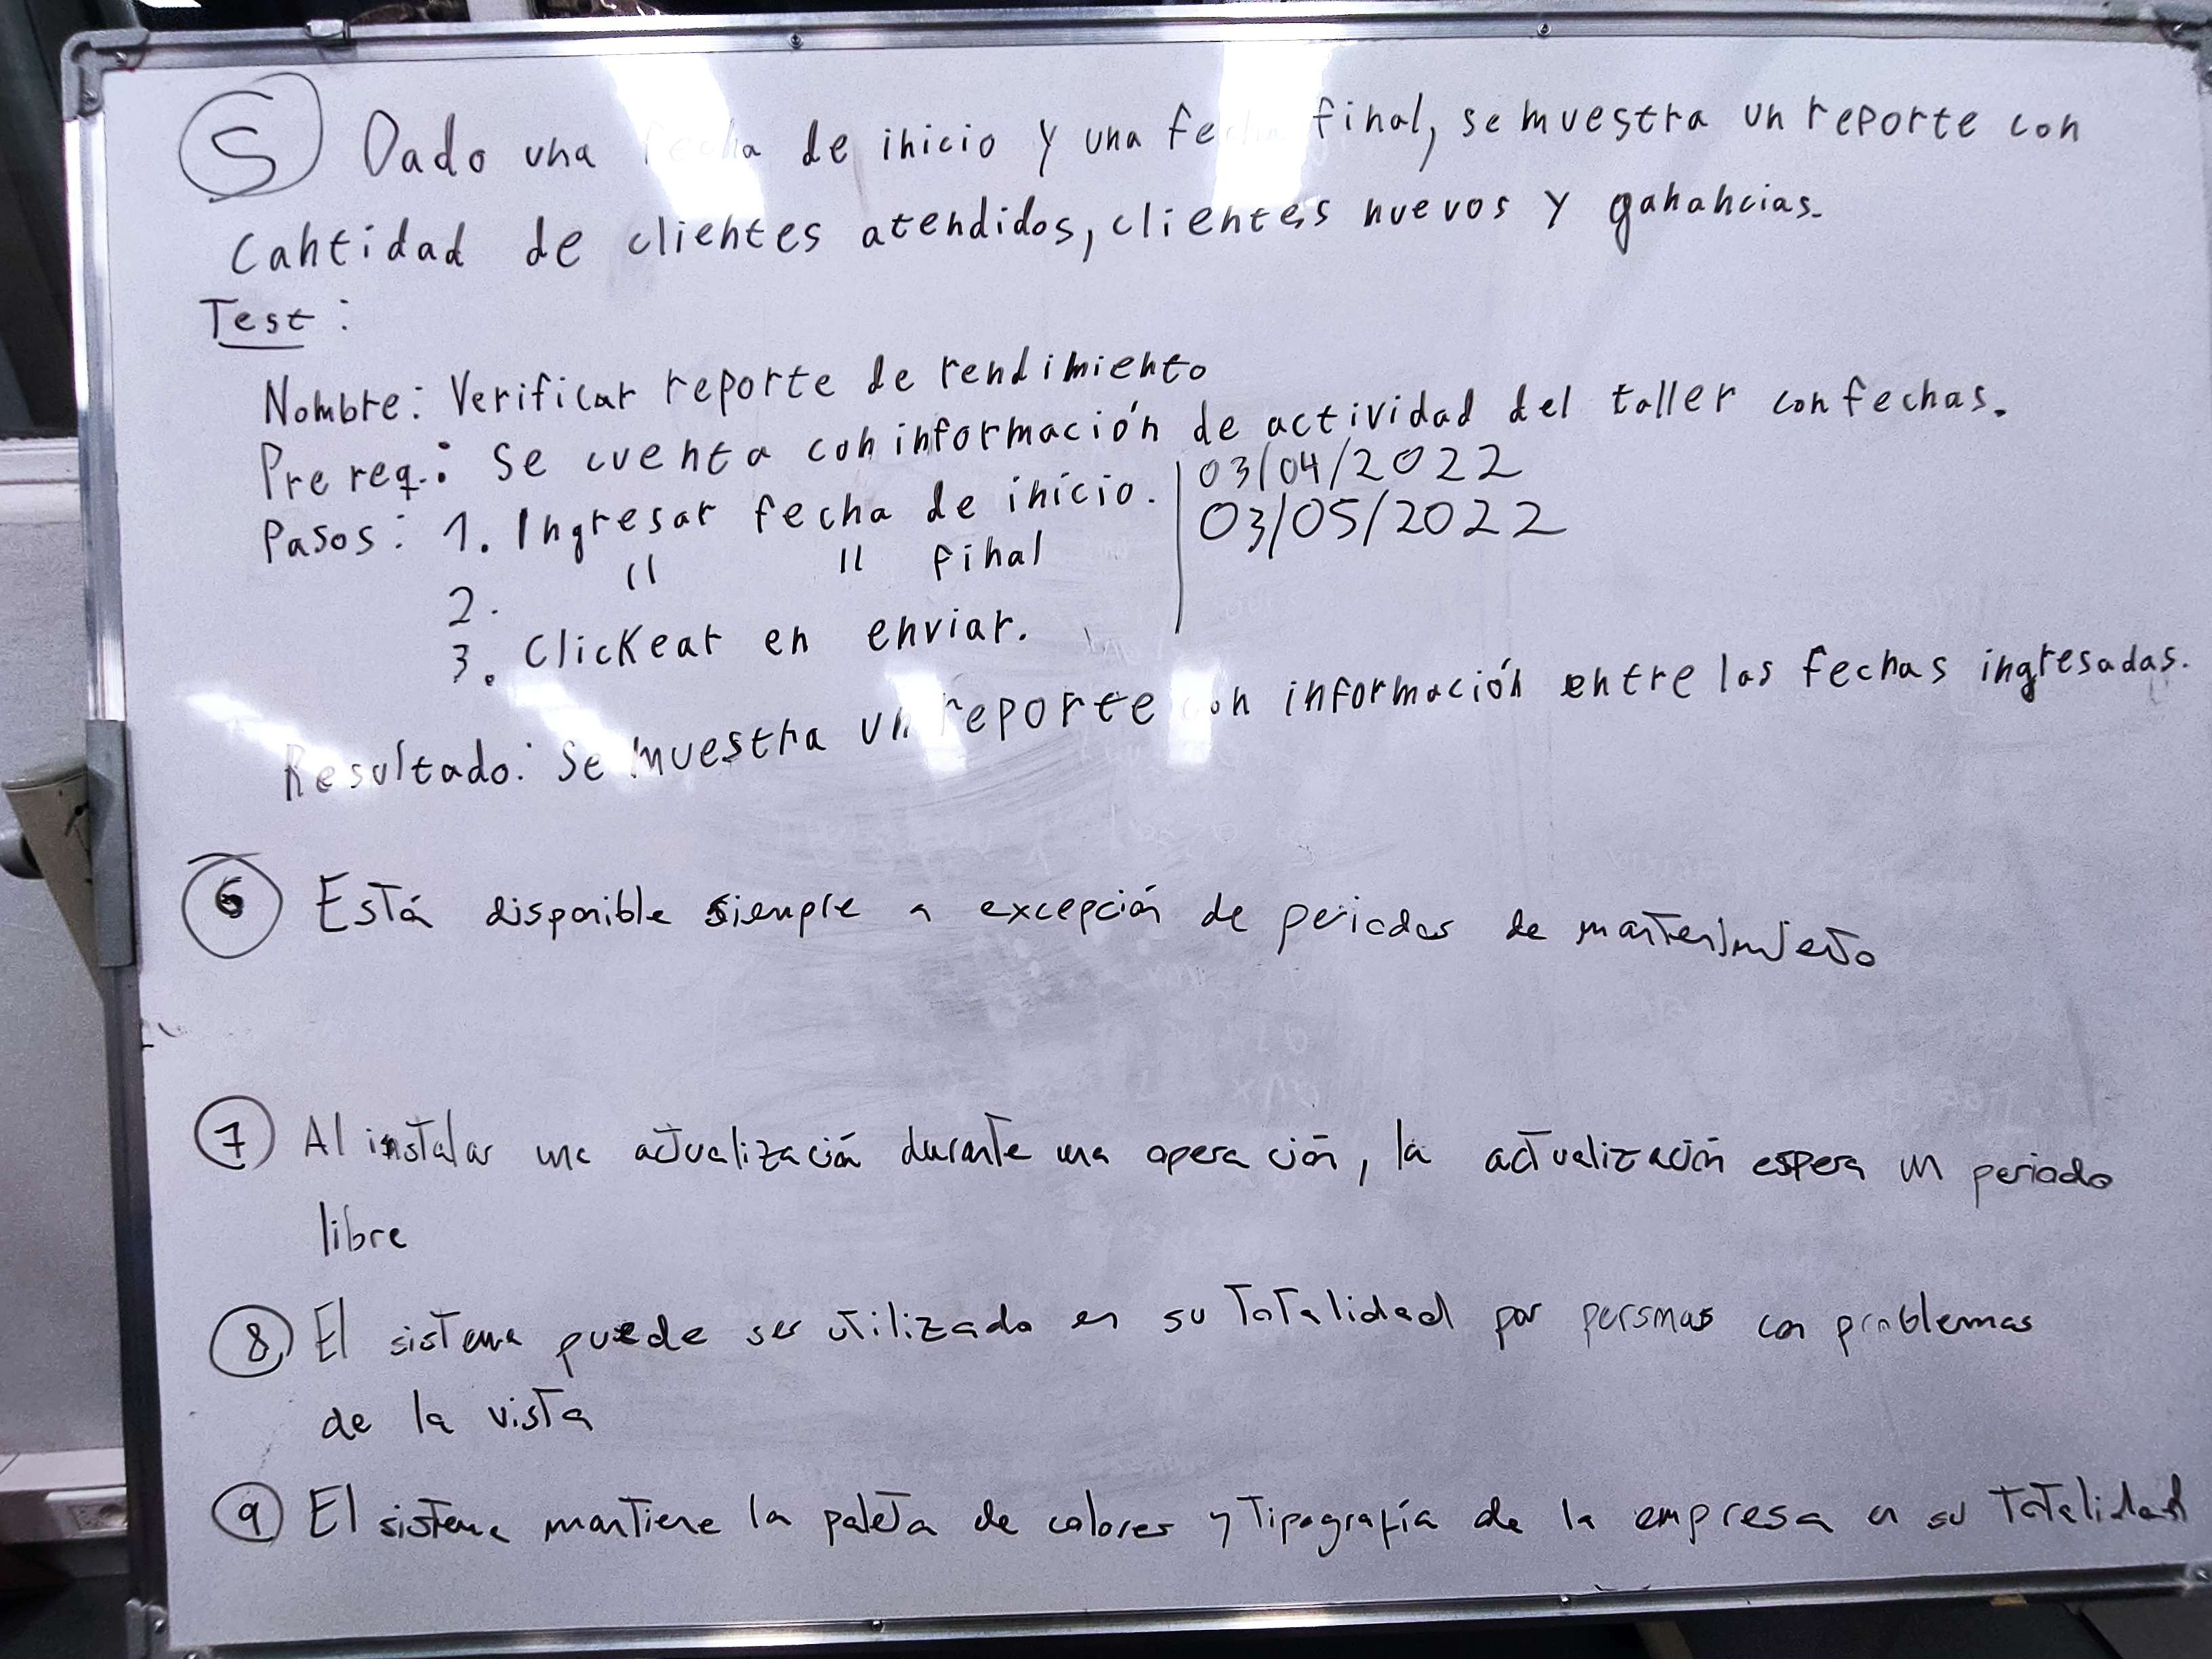 5 Dado una fecha de inicio y una fecha final, se muestra un reporte con
cantidad de clientes atendidos, clientes nuevos y ganancias.
Test:
Nombre: Verificar reporte de rendimiento
Pre req.: Se cuenta con información de actividad del taller con fechas.
Pasos: 1. Ingresar fecha de inicio. | 03/04/2022
2. " " final | 03/05/2022
3. Clickear en enviar.
Resultado: Se muestra un reporte con información entre las fechas ingresadas.
6 Está disponible siempre a excepción de periodos de mantenimiento
7 Al instalar una actualización durante una operación, la actualización espera un periodo
libre
8 El sistema puede ser utilizado en su totalidad por personas con problemas
de la vista
9 El sistema mantiene la paleta de colores y tipografía de la empresa en su totalidad